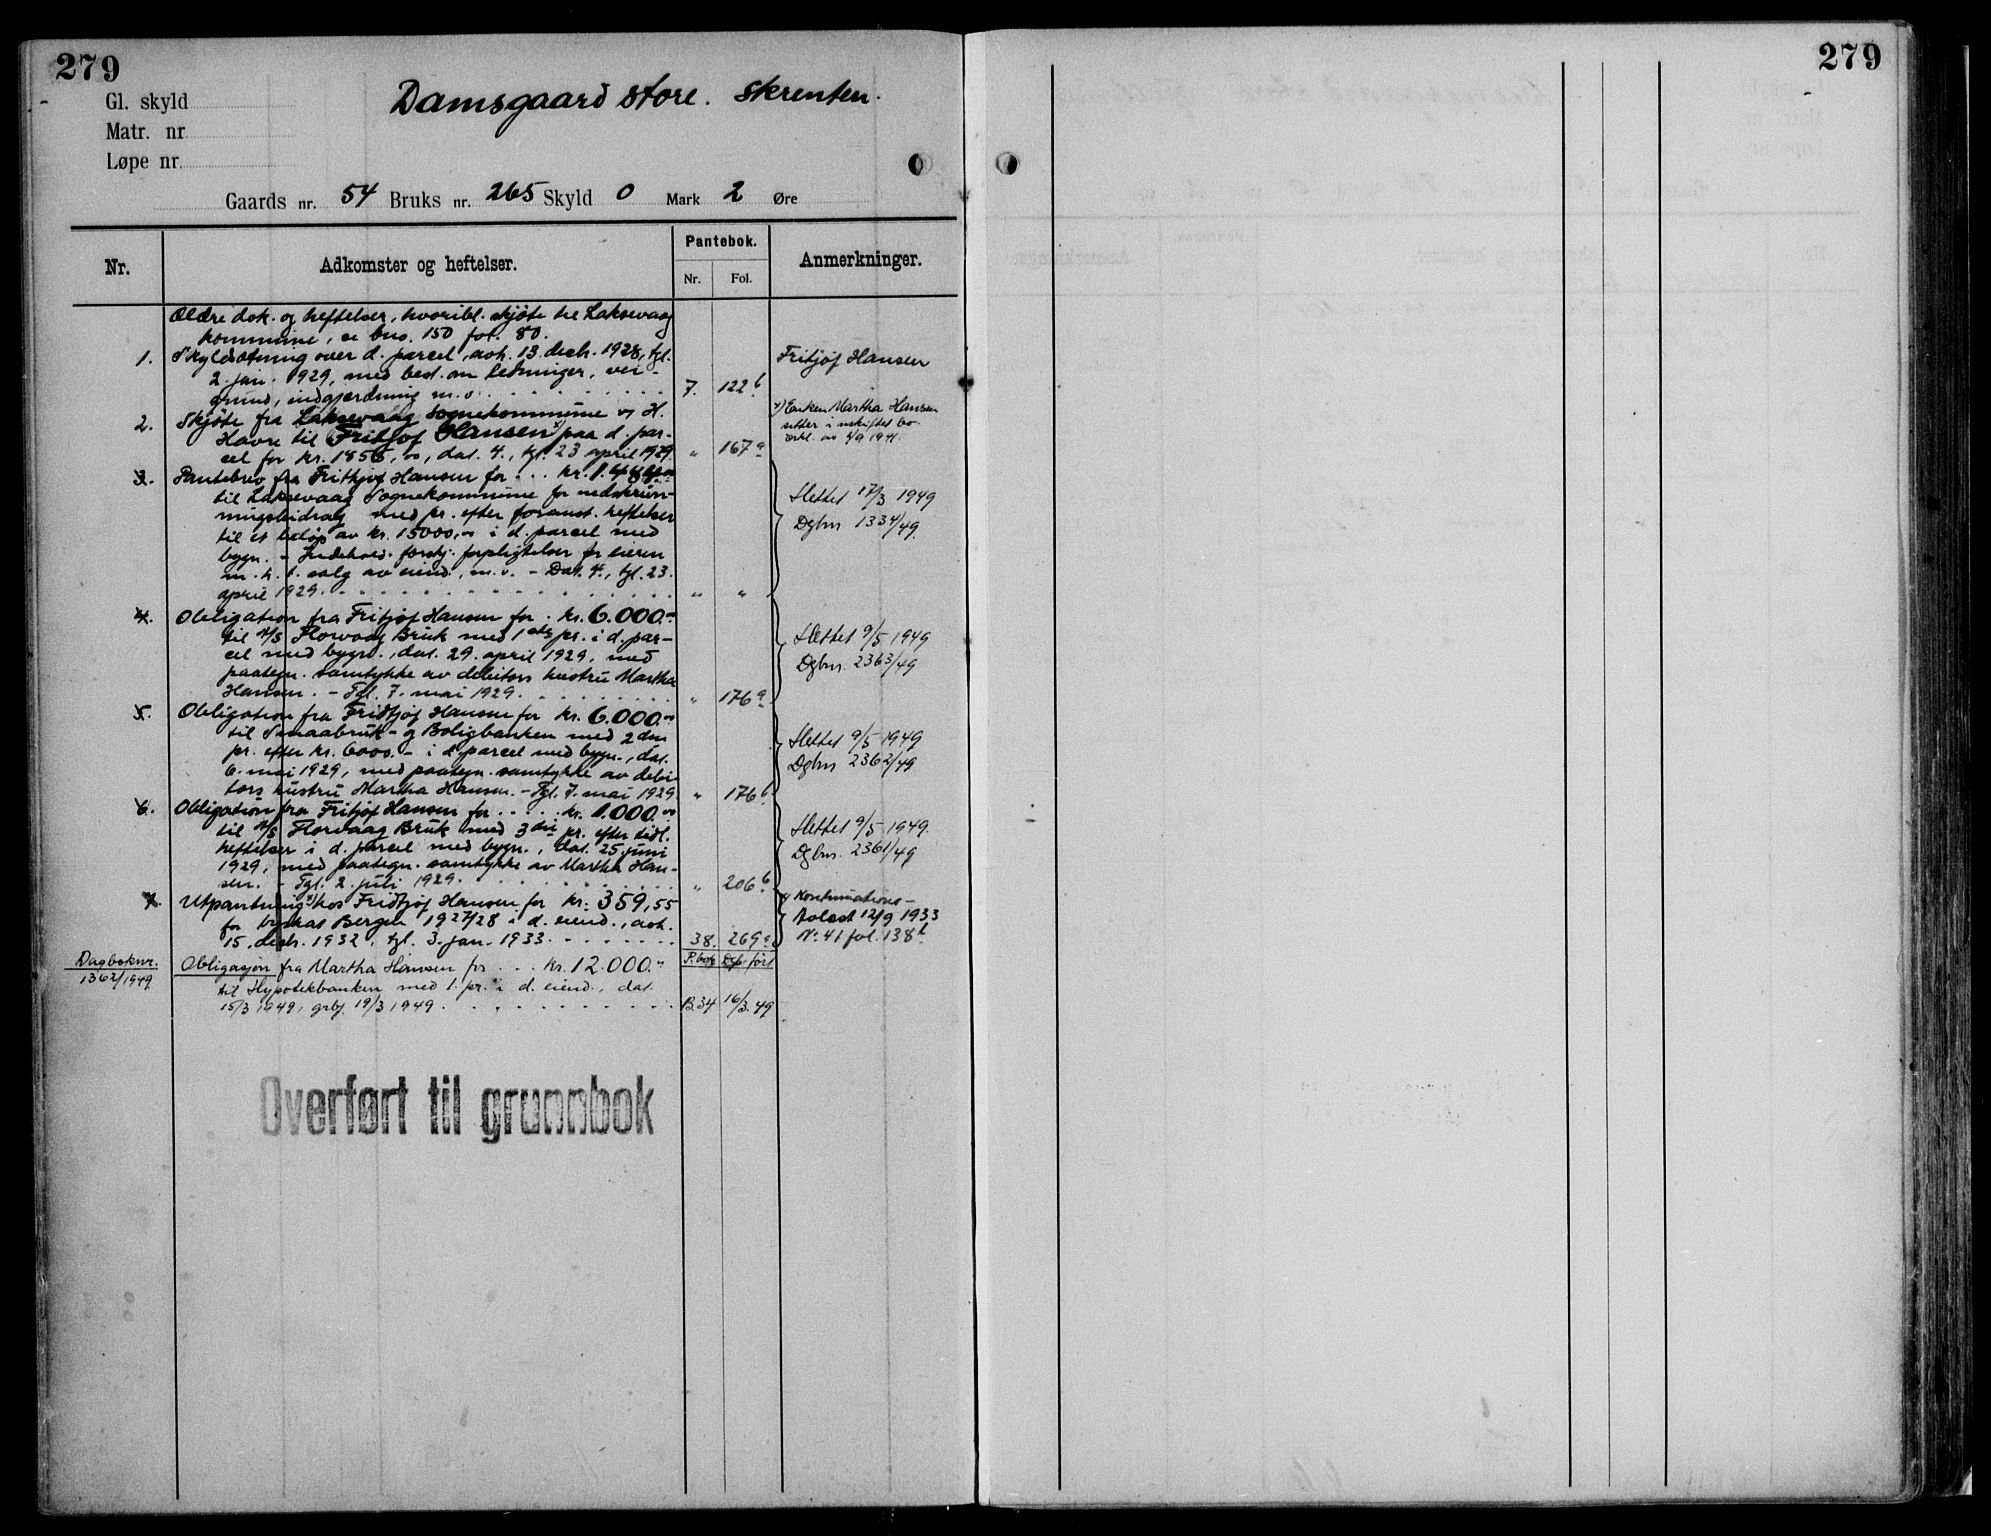 279
Gl. skyld
Matr. nr
Løpe nr.
Damsgaard store. Skrenten.
Gaards nr. 54 Bruks nr. 265 Skyld 0 Mark 2 Øre
Nr.
Adkomster og heftelser.
Pantebok.
Nr.
Fol.
Anmerkninger.
Ældre dok. og heftelser, hvoribl. skjøte til Laksevaag
kommune, se bno. 150 fol. 80.
1. Skyldsætning over d. parcel, avh. 13. decb. 1928, tgl.
2. jan. 1929, med best. om ledninger, vei-
grund, indgjærdning m.v. 7. 122 b
Fritjof Hansen
2. Skjøte fra Laksevaag sognekommune v/ H.
Havre til Fritjof Hansen x) paa d. par-
cel for kr. 1855,00, dat. 4., tgl. 23 april 1929 " 167 a
x) Enken Martha Hansen
sitter i uskiftet bo
3. Pantebrev fra Frithjof Hansen for ... kr.
til Laksevaag Sognekommune for nedskriv-
ningsbidrag med pr. efter foranst. heftelser
til et beløp av kr. 15000,00 i d. parcel med
bygn. - Indehold. forskj. forpligtelser for eieren
m.h.t. salg av eiend., m.v. - Dat. 4., tgl. 23.
april 1929. " "
Slettet 17/3 1949
Dgbnr 1334/49.
4. Obligation fra Fritjof Hansen for . kr. 6.000.-
til A/S Florvaag Bruk med 1ste pr. i d. par-
cel med bygn., dat. 29. april 1929, med
paategn. samtykke av debitors hustru Martha
Hansen. - Tgl. 7. mai 1929. " 176 a
Slettet 9/5 1949
Dgbnr. 2363/49
5. Obligation fra Fridtjof Hansen for kr. 6.000.00
til Smaabruk- og Boligbanken med 2den
pr. efter kr. 6000.- i d. parcel med bygn., dat.
6. mai 1929, med paategn. samtykke av debi-
tors hustru Martha Hansen. - Tgl. 7. mai 1929 " 176 b
Slettet 9/5 1949
Dgbnr 2362/49
6. Obligation fra Fritjof Hansen for .... kr. 1.000.00
til A/S Florvaag Bruk med 3die pr. efter tidl.
heftelser i d. parcel med bygn., dat. 25. juni
1929, med paategn. samtykke av Martha Han-
sen. - Tgl. 2. juli 1929. " 206 b
Slettet 9/5 1949.
Dgbnr. 2361/49
7. Utpantning x) hos Fridtjof Hansen for kr. 359,55
for byskat Bergen 1927/28 i d. eiend., avh.
15. decb. 1932, tgl. 3. jan. 1933. 38. 269 a
x) Kontinuations-
Avlest 12/9 1933
No. 41 fol. 138 b
Dagboknr.
1362/1949
P.bok Dgb ført
Obligasjon fra Martha Hansen for ... kr. 12.000."
til Hypotekbanken med 1. pr. i d. eiend., dat.
15/3 1949, grbf. 19/3 1949. B.34 16/3.49
Overført til grunnbok
279